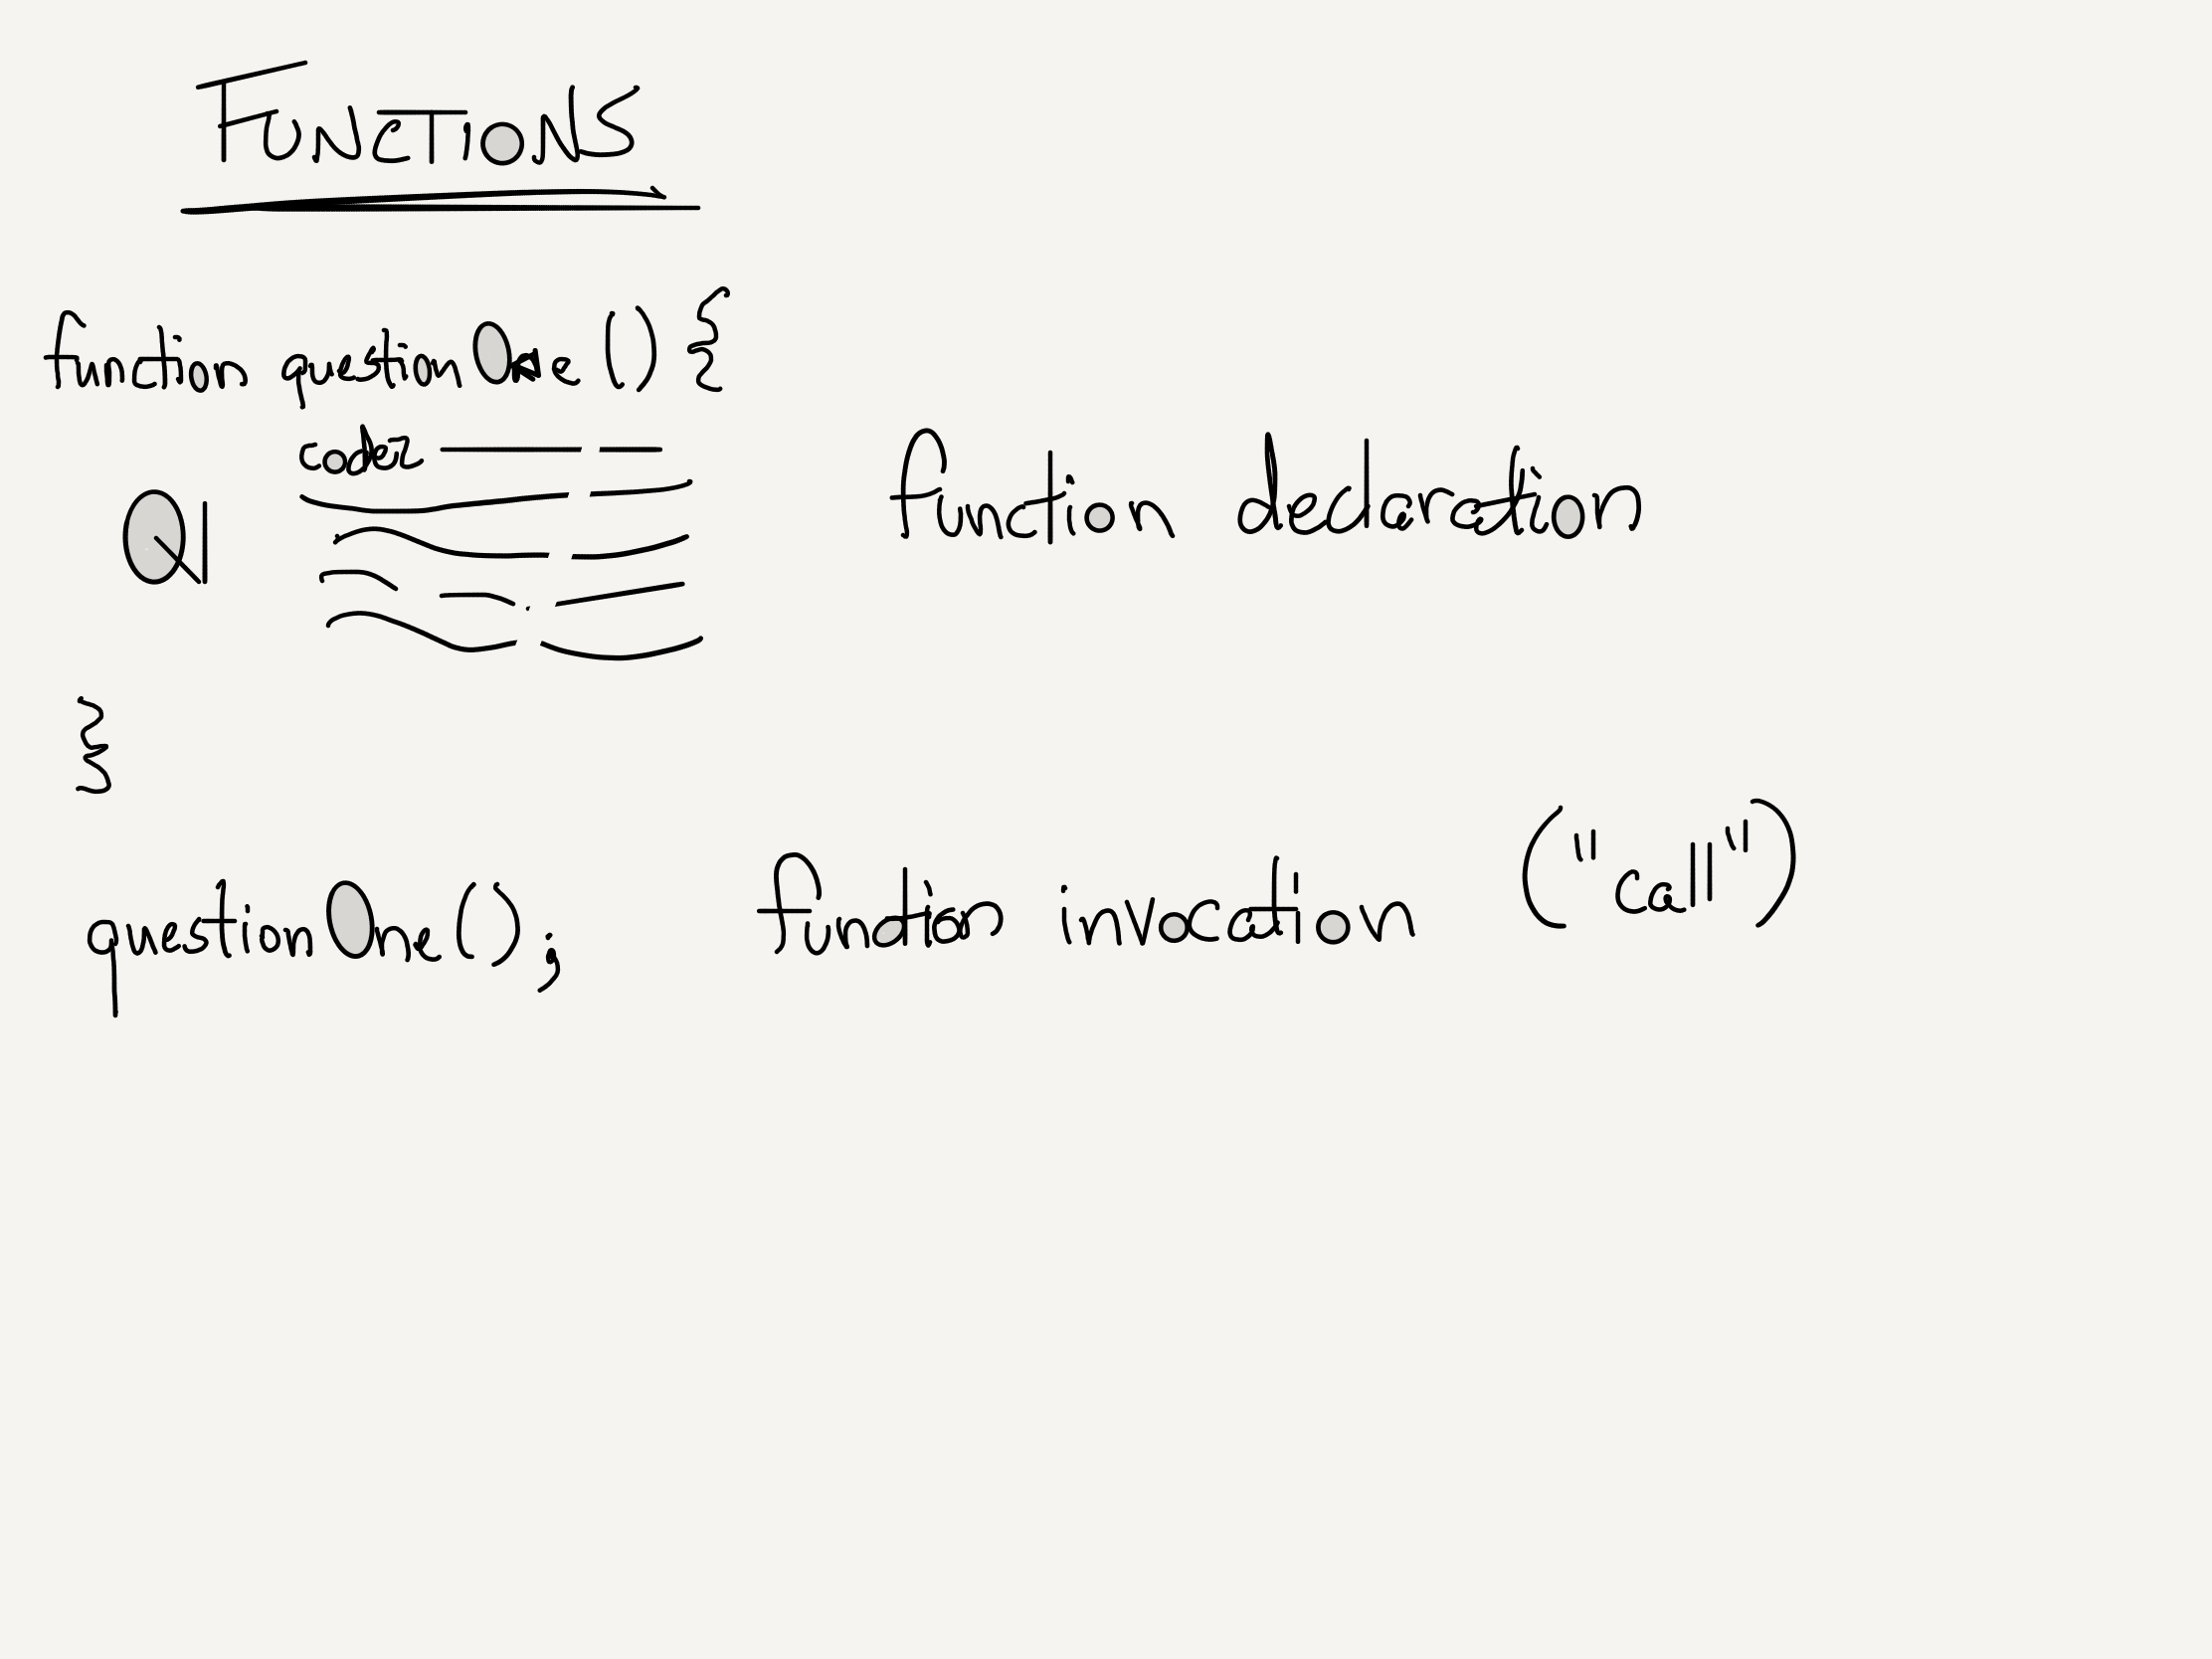 FUNCTIONS
function questionOne () {
codez
Q1
function declaration
}
questionOne();
function invocation ("call")